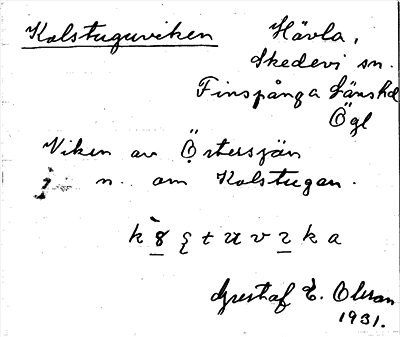 Kolstuguviken Hävla,
Skedevi sn.
Finspånga länshd
Ögl
Viken av Östersjön
n. om Kolstugan.
Gustaf E. Olsson
1931.